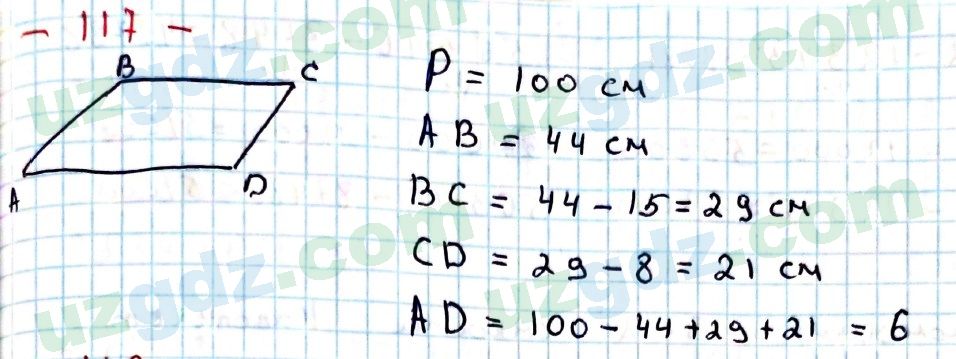 - 117 -
B C
A D
P = 100 см
AB = 44 см
BC = 44 - 15 = 29 см
CD = 29 - 8 = 21 см
AD = 100 - 44 + 29 + 21 = 6
uzgdz.com
uzgdz.com
uzgdz.com
uzgdz.com
uzgdz.com
uzgdz.com